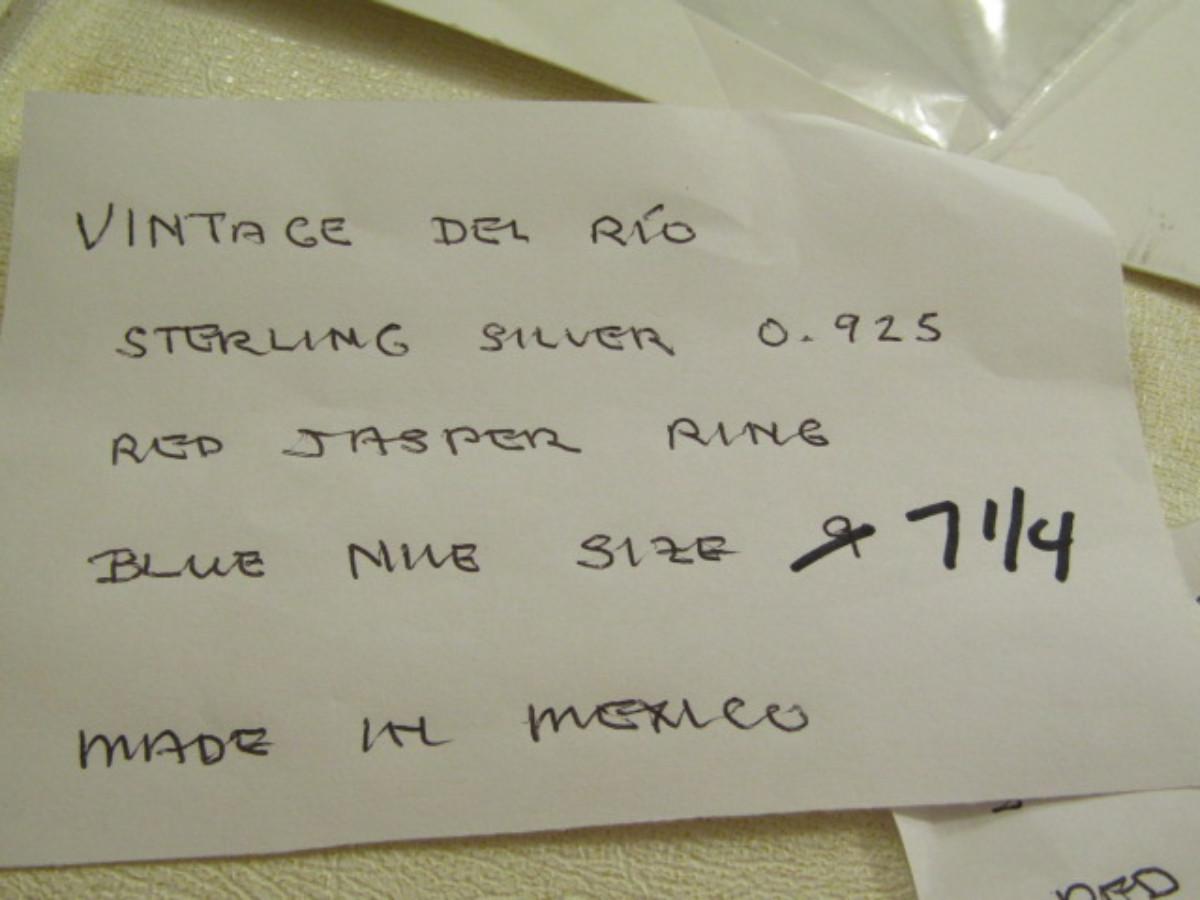 VINTAGE DEL RÍO
STERLING SILVER 0.925
RED JASPER RING
BLUE NILE SIZE 9 7 1/4
MADE IN MEXICO
RED